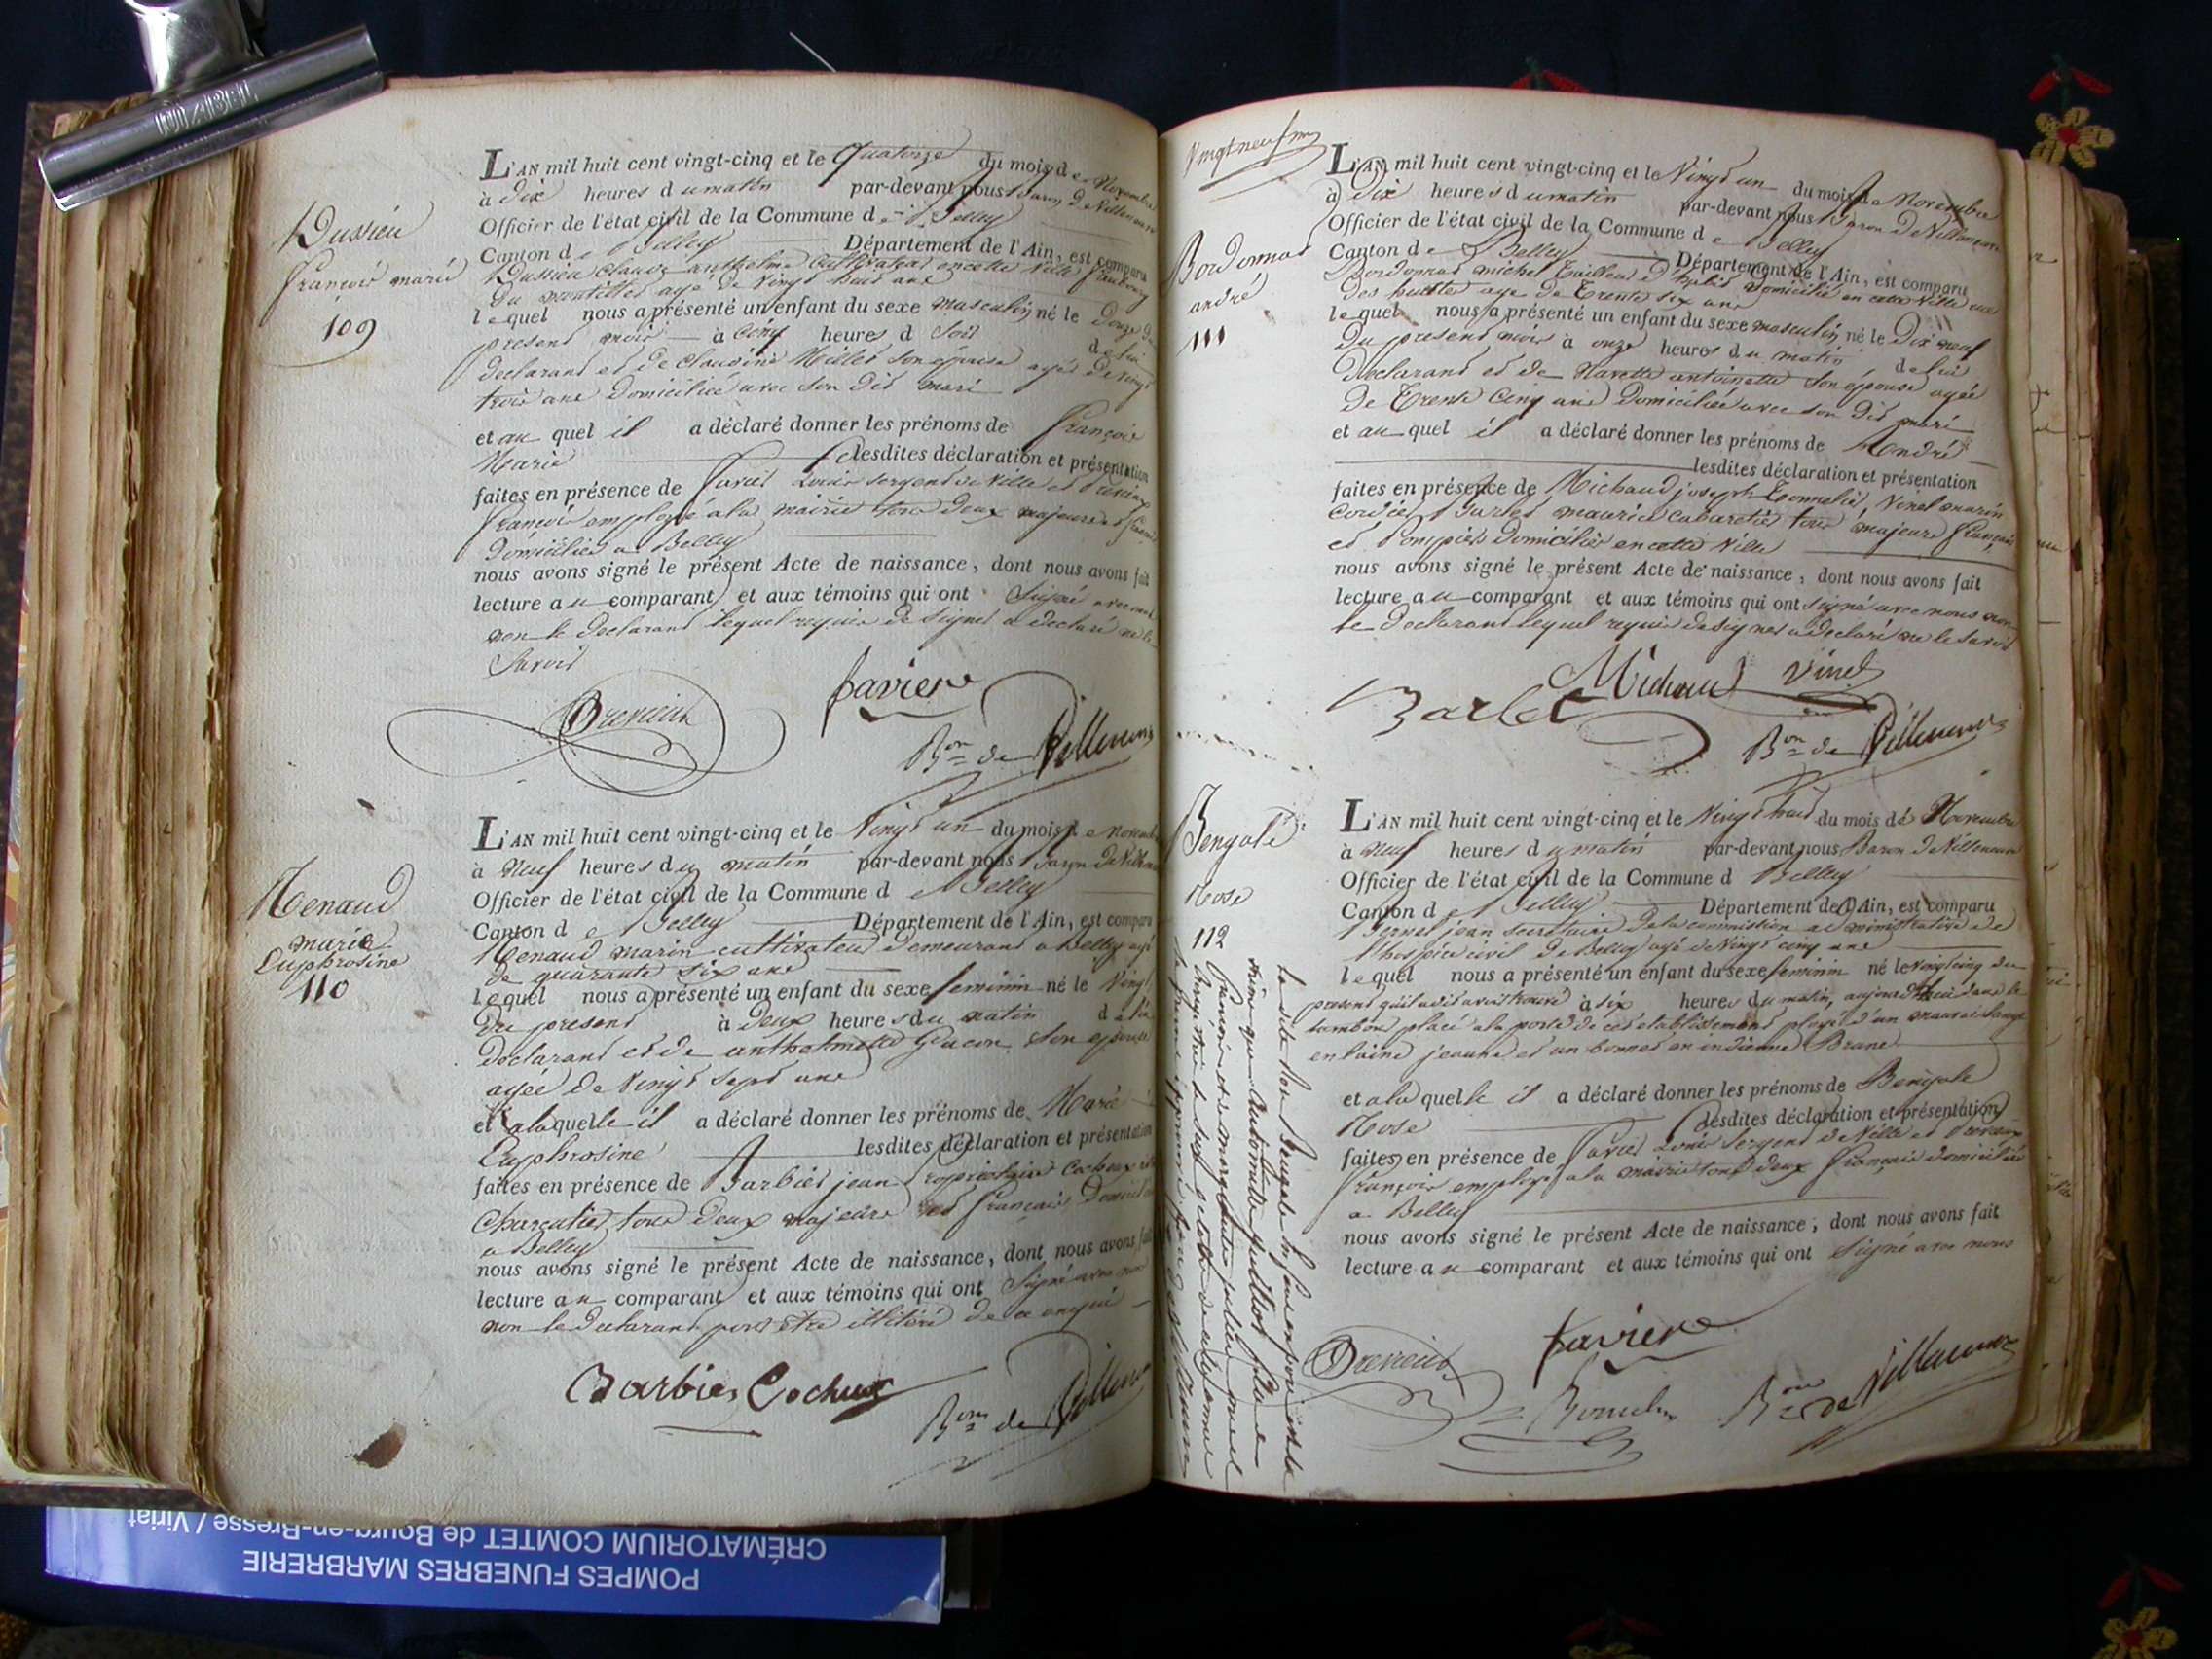 Dussieu
françois marie
109
L'AN mil huit cent vingt-cinq et le Quatorze du mois de Novembre
à Dix heures du matin par-devant nous Baron de Villeneuve
Officier de l'état civil de la Commune de Belley
Canton de Belley Département de l'Ain, est comparu
Dussieu Claude anthelme Cultivateur en cette Ville faubourg
du agé de Vingt huit ans
lequel nous a présenté un enfant du sexe masculin né le Douze du
present mois à Cinq heures d Soir de lui
declarant et de Claudine Millet son épouse agée de Vingt
trois ans Domiciliée avec son dit mari
et au quel il a déclaré donner les prénoms de françois
Marie lesdites déclaration et présentation
faites en présence de favier Louis Sergent de Ville et Drevieux
françois employé à la mairie tous deux majeurs et français
Domiciliés a Belley
nous avons signé le présent Acte de naissance, dont nous avons fait
lecture au comparant et aux témoins qui ont Signé avec nous
non le declarant lequel requis de Signer a declaré ne le
Savoir
favier
Bon de Villeneuve
Renaud
marie
Euphrosine
110
L'AN mil huit cent vingt-cinq et le Vingt un du mois de Novembre
à Neuf heures du matin par-devant nous Baron de Villeneuve
Officier de l'état civil de la Commune de Belley
Canton de Belley Département de l'Ain, est comparu
Renaud marin cultivateur demeurant a Belley agé
de quarante six ans
lequel nous a présenté un enfant du sexe feminin né le Vingt
du present à Deux heures du matin de lui
declarant et de anthelmette son epouse
agée de Vingt sept ans
et a laquelle il a déclaré donner les prénoms de Marie
Euphrosine lesdites déclaration et présentation
faites en présence de Barbier jean Propriétaire Cocheux
Charcutier tous deux majeurs et français Domiciliés
a Belley
nous avons signé le présent Acte de naissance, dont nous avons fait
lecture au comparant et aux témoins qui ont Signé avec nous
non le declarant pour être illitéré de ce enquis
Barbier Cocheux
Bon de Villeneuve
Vingt neuf
Bordonnas
andré
111
L'AN mil huit cent vingt-cinq et le Vingt un du mois de Novembre
à Dix heures du matin par-devant nous Baron de Villeneuve
Officier de l'état civil de la Commune de Belley
Canton de Belley Département de l'Ain, est comparu
Bordonnas michel Tailleur d'habits Domicilié en cette Ville rue
Des agé de Trente Six ans
lequel nous a présenté un enfant du sexe masculin né le Dix neuf
Du present mois à onze heures du matin de lui
Declarant et de Navette antoinette son épouse agée
de Trente Cinq ans Domiciliée avec son dit mari
et au quel il a déclaré donner les prénoms de André
lesdites déclaration et présentation
faites en présence de Michaud joseph Tonnelier, Vinet marin
Cordier Barlet maurice cabaretier tous majeurs français
et Pompiers Domiciliés en cette Ville
nous avons signé le présent Acte de naissance, dont nous avons fait
lecture au comparant et aux témoins qui ont signé avec nous non
le Declarant lequel requis de signer a declaré ne le savoir
Michaud Vinet
Barlet
Bon de Villeneuve
Bengale
Rose
112
L'AN mil huit cent vingt-cinq et le Vingt huit du mois de Novembre
à Neuf heures du matin par-devant nous Baron de Villeneuve
Officier de l'état civil de la Commune d Belley
Canton de Belley Département de l'Ain, est comparu
jean Secretaire de la commission administrative de
l'hospice civil de Belley agé de Vingt cinq ans
lequel nous a présenté un enfant du sexe feminin né le Vingt cinq du
present qu'il a dit avoir trouvé à six heures du matin, aujourd'hui dans le
tambour placé a la porte de cet etablissement ployé d'un mauvais lange
en laine jeaune et un bonnet en indienne Brune
et a la quelle il a déclaré donner les prénoms de Bengale
Rose lesdites déclaration et présentation
faites en présence de favier Louis Sergent de Ville et Drevieux
françois employé a la mairie tous deux français domiciliés
a Belley
nous avons signé le présent Acte de naissance, dont nous avons fait
lecture au comparant et aux témoins qui ont Signé avec nous
favier
Bon de Villeneuve
POMPES FUNEBRES MARBRERIE
CRÉMATORIUM COMTET de Bourg-en-Bresse / Viriat